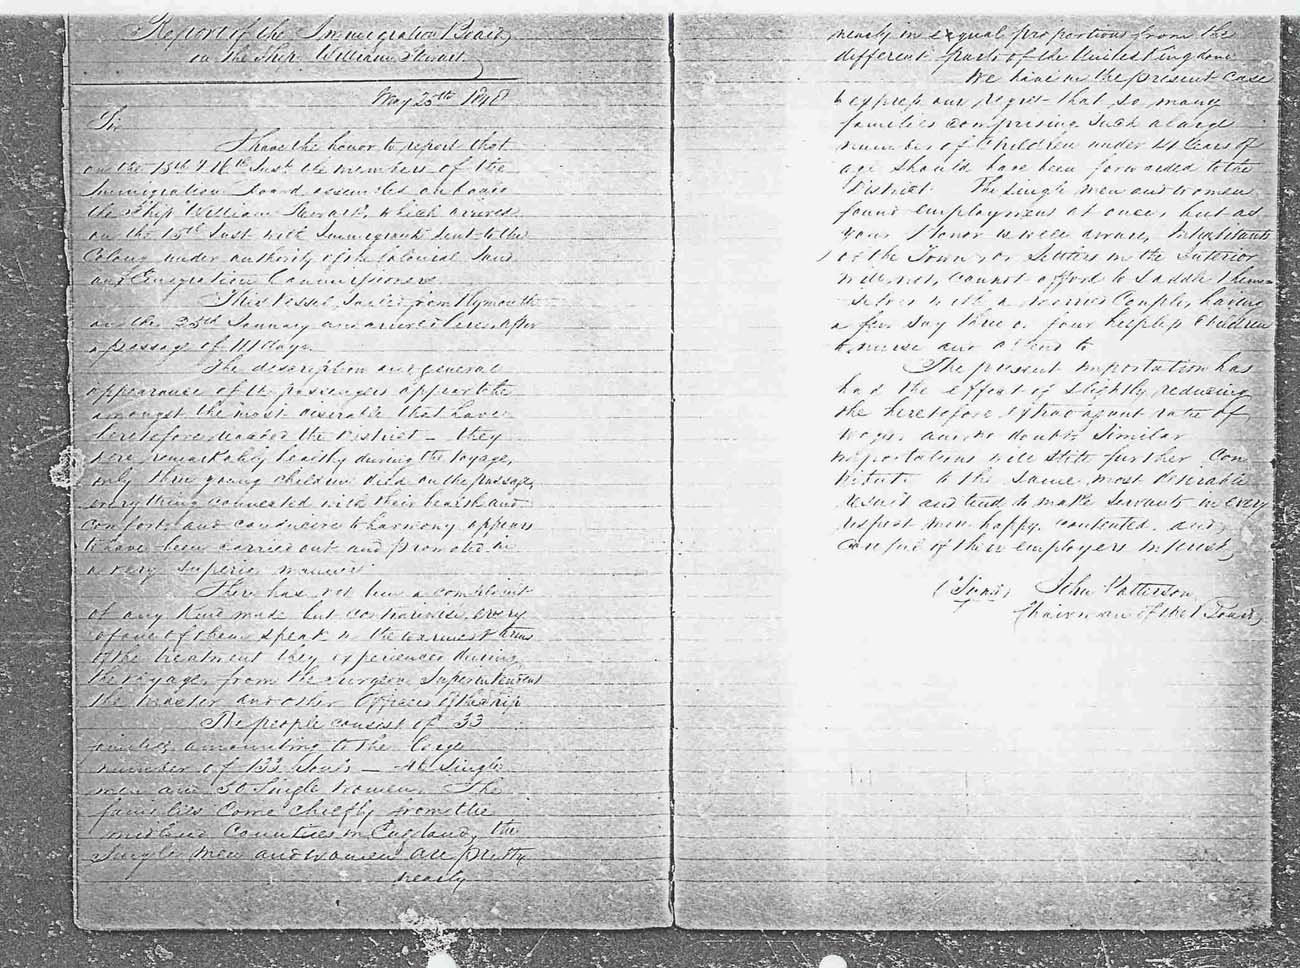 Report of the Immigration Board
on the Ship William Stewart.
May 25th 1848
Sir
I have the honor to report that
on the 15th & 16th Inst. the members of the
Immigration Board assembled on board
the Ship William Stewart, which arrived
on the 15th Inst with Immigrants sent to the
Colony under authority of the Colonial Land
and Emigration Commissioners
This vessel sailed from Plymouth
on the January and arrived here after
a passage of 111 days
The description and general
appearance of the passengers appear to be
amongst the most desirable that have
heretofore reached the District – they
were remarkably healthy during the voyage,
only three young children died on the passage,
every thing connected with their health and
comfort and conducive to harmony appears
to have been carried out and promoted in
a very superior manner
There has not been a complaint
of any kind made but contrariwise, every
one of them speak in the warmest terms
of the treatment they experienced during
the voyage, from the Surgeon Superintendent
the Master and other Officers of the Ship
The people consist of 33
families amounting to the large
number of 133 Souls – Single
men and Single Women. The
families come chiefly from the
midland Counties in England, the
Single men and women are pretty
nearly
nearly in equal proportions from the
different parts of the United Kingdom
We have in the present case
to express our regret that so many
families comprising such a large
number of Children under years of
age should have been forwarded to the
District. The single men and women
found employment at once, but as
your Honor is well aware, Inhabitants
of the Town, or Settlers in the Interior
will not, cannot afford to saddle them-
selves with a married Couple, having
a few say three or four helpless Children
to nurse and attend to
The present importation has
had the effect of slightly reducing
the heretofore extravagant rate of
wages and no doubt similar
importations will still further con
tribute to the same most desirable
result and tend to make servants in every
respect more happy, contented, and
careful of their employers interest,
(Signed) John Patterson
Chairman of the Board